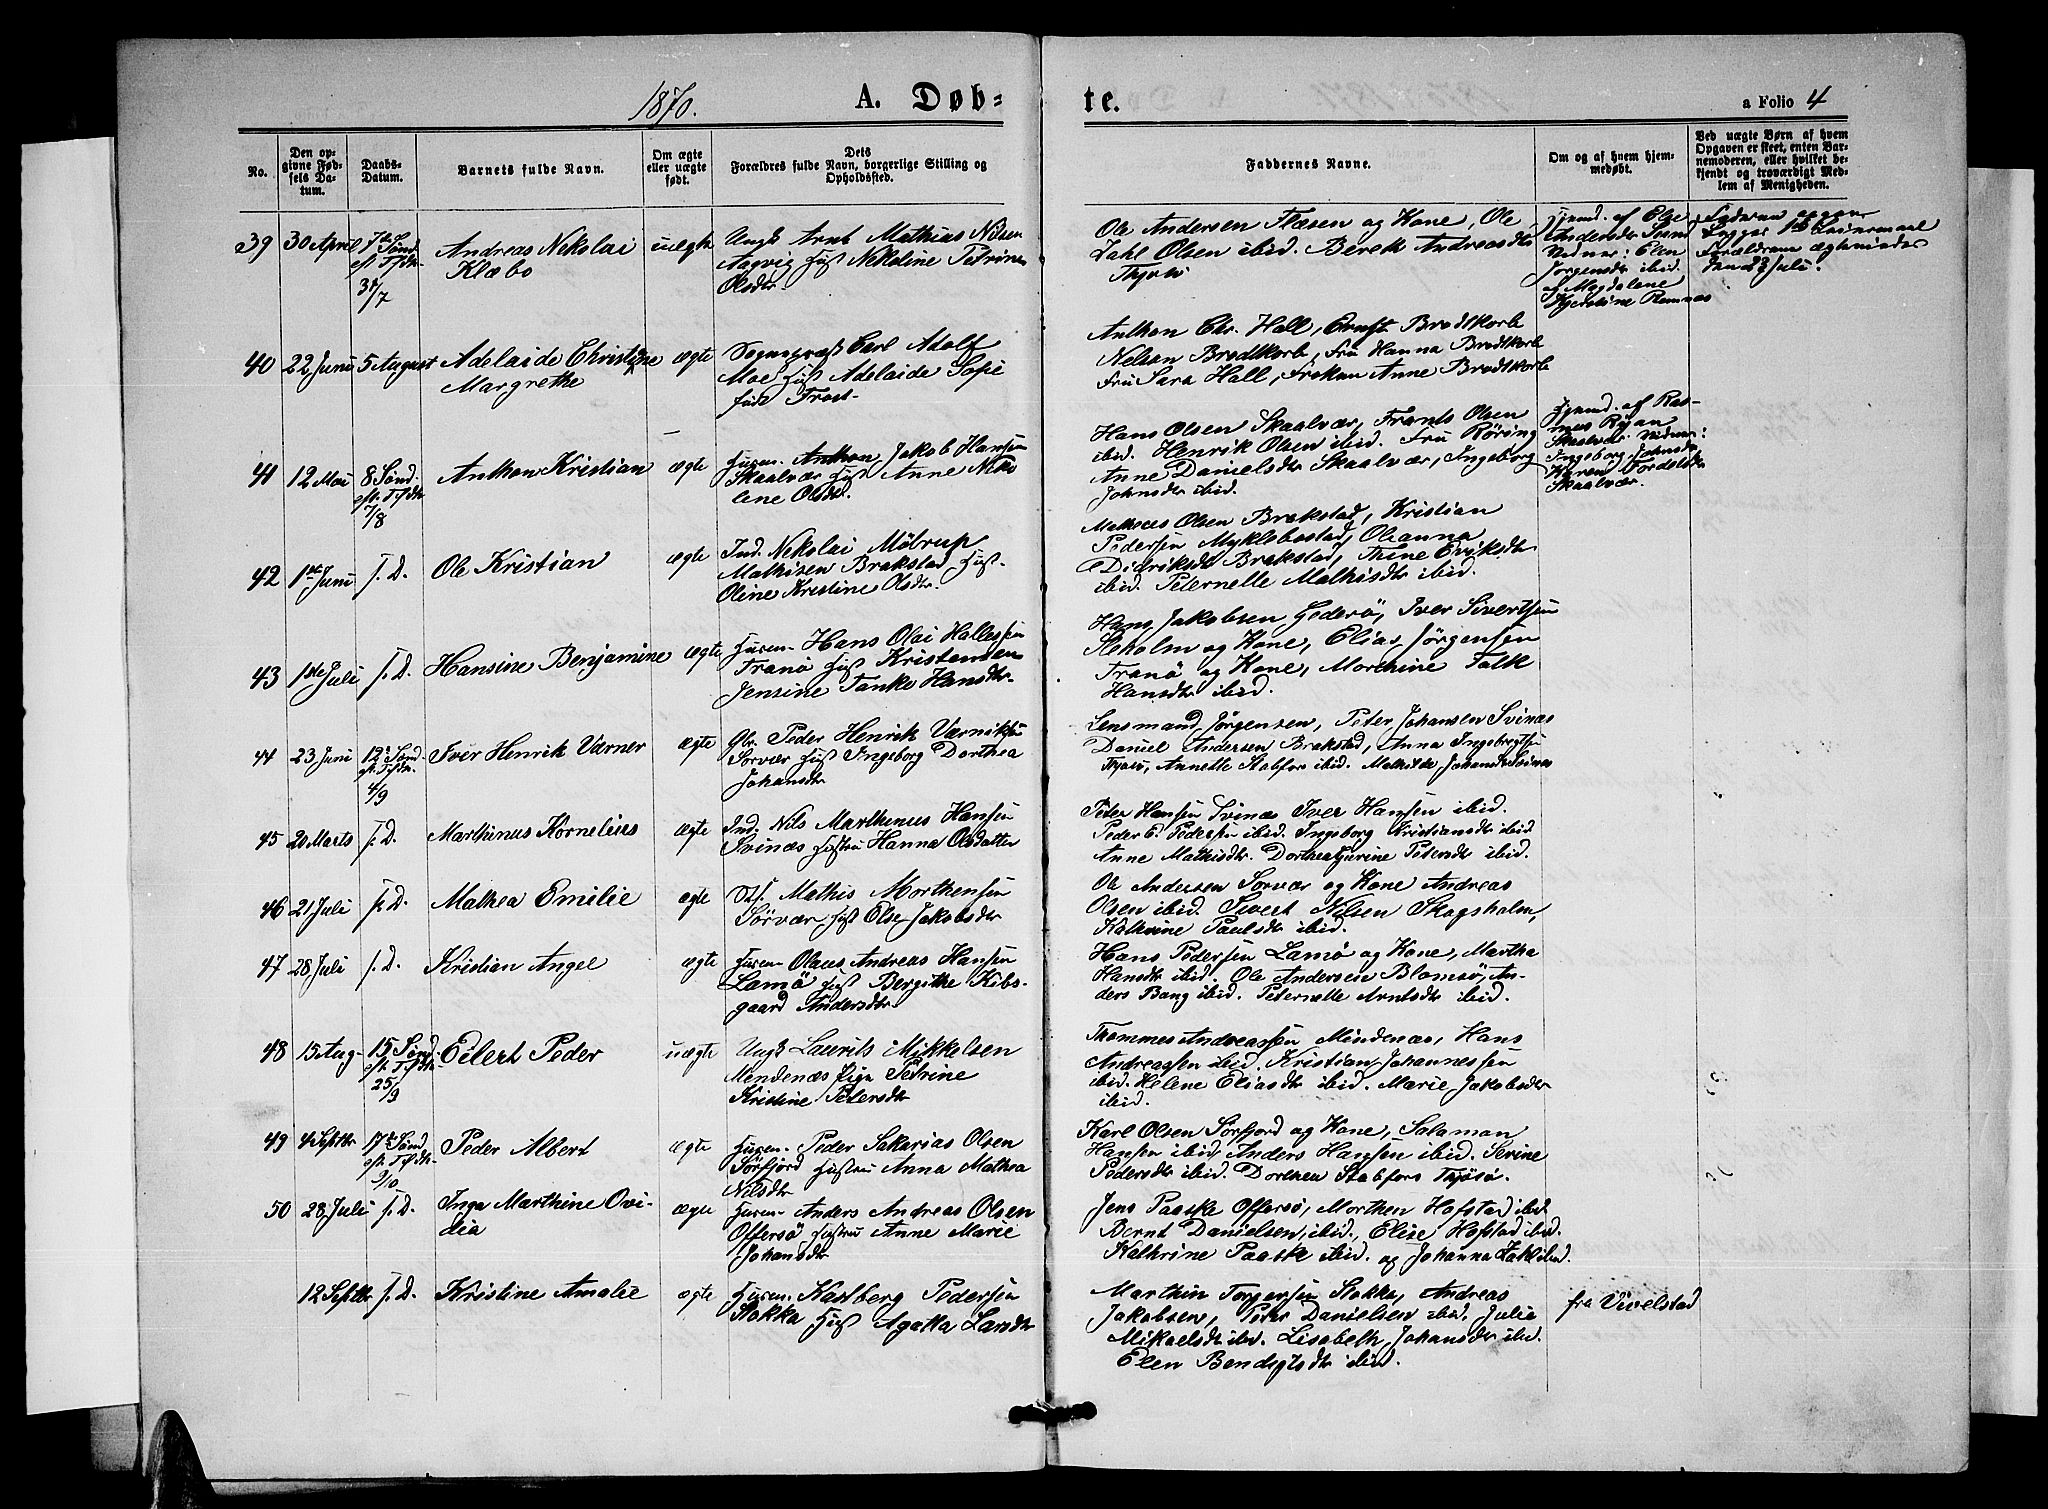 1870.
A. Døb-
te.
a Folio 4
No.
Den op-
givne Fød-
sels Da-
tum.
Daabs-
Datum.
Barnets fulde Navn.
Om ægte
eller uægte
født.
Dets
Forældres fulde Navn, borgerlige Stilling og
Opholdssted.
Faddernes Navne.
Om og af hvem hjem-
medøbt.
Ved uægte Børn af hvem
Opgaven er skeet, enten Bar-
nemoderen, eller hvilket be-
kjendt og troværdigt Med-
lem af Menigheden.
39 30 April 7de Sønd.
eft. Trfdtr.
31/7
Andreas Nikolai
Klæbo
uægte
Ungk Arnt Mathias Nilsen
Aagvig Nikoline Petrine
Olsdtr.
Ole Andersen Flæsen og Kone, Ole
Dahl Olsen ibid. Berek Andreasdtr
Thjotø
hjemd. af Else
Andersdtr
Vidner: Elen
Jørgensdtr ibid.
& Magdalene
Kjerstine Remnæs
Faderens
1ste Leiermaal
Forældrene
den 23 Juli.
40 22 Juni 5 August Adelaide Christine
Margrethe
ægte
Sognepræst Carl Adolf
Moe Hust Adelaide Sofie
født Frost
Anthon Chr. Hall, Ernst Brodtkorb
Nelson Brodtkorb, Fru Hanna Brodtkorb
Fru Sara Hall, Frøken Anne Brodtkorb
41 12 Mai 8 Sønd.
eft. Trfdtr
7/8
Anthon Kristian
ægte
Husm. Anthon Jakob Hansen
Skaalvær Hust Anne Niko
line Olsdtr.
Hans Olsen Skaalvær, Frants Olsen
ibid. Henrik Olsen ibid. Fru Röring
Anne Danielsdtr Skaalvær, Ingeborg
Johnsdtr ibid.
hjemd. af Ras-
mus Røjan
Skaalvær. Vidner:
Ingeborg Johnsdtr
Karen
Skaalvær.
42 1ste Juni s. D. Ole Kristian
ægte
Ind. Nikolai Möbrup
Mathisen Brakstad, Hust.
Oline Kristine Olsdtr.
Mathias Olsen Brakstad, Kristian
Pedersen Myklebostad, Oleanna
Didriksdtr Brakstad, Trine Eriksdtr
ibid. Peternelle Mathisdtr ibid.
43 1ste Juli s. D. Hansine Benjamine
ægte
Husm. Hans Olai Hallessen
Tranö Hust Kristense
Jensine Tanke Hansdtr.
Hans Jakobsen Gederö, Iver Sivertsen
Stokholm og Kone, Elias Jörgensen
Tranö og Kone, Morthine Falk
Hansdtr ibid.
44 23 Juni 12te Sønd.
eft. Trfdtr.
4/9
Iver Henrik Værner
ægte
Gbr. Peder Henrik Værniksen
Sorvær Hust Ingeborg Dorthea
Johansdtr
Lensmand Jörgensen, Peter Johansen Svinæs
Daniel Andersen Brakstad, Anna Ingebregtsen
Annette Stabfors ibid. Mathilde Johansdtr Svinæs
45 20 Marts s. D. Marthinus Kornelius
ægte
Ind. Nils Marthinus Hansen
Svinæs Hustru Hanna Olsdatter
Peter Hansen Svinæs Iver Hansen ibid.
Peder E. Pedersen ibid. Ingeborg Kristiansdtr ibid
Anne Mathisdtr. Dorthea Jurine Petersdtr ibid.
46 21 Juli s. D. Mathea Emilie
ægte
Mathis Morthensen
Sörvær Hust Else Jakobsdtr
Ole Andersen Sorvær og Kone Andreas
Olsen ibid. Sivert Nilsen Skogsholm,
Kathrine Paulsdtr ibid.
47 28 Juli s. D. Kristian Angel
ægte
Husm Olaus Andreas Hansen
Lamö Hust Bergithe Kibs-
gaard Andersdtr
Hans Pedersen Lamö og Kone, Martha
Hansdtr ibid. Ole Andersen Blomsö, An-
ders Bang ibid. Peternelle Arntsdtr ibid.
48 15 Aug. 15 Sønd
eft. Trfdtr.
25/9
Eilert Peder
uægte
Ungk Laurits Mikkelsen
Mindenæs Pige Petrine
Kristine Petersdtr
Thommes Andreassen Mindenæs, Hans
Andreassen ibid. Kristian Johannessen
ibid. Helene Eliasdtr ibid. Marie Jakobsdtr
ibid.
49 4 Septbr 17de Sønd
eft. Trfdtr.
9/10
Peder Albert
ægte
Husm. Peder Sakarias Olsen
Sörfjord Hustru Anna Mathea
Nilsdtr
Karl Olsen Sörfjord og Kone, Salamon
Hansen ibid, Anders Hansen ibid. Sevine
Pedersdtr ibid. Dorthea Stabfors Thjösö.
50 28 Juli s. D. Inga Marthine Ovi-
dia
ægte
Husm. Anders Andreas Olsen
Offersö Hustru Anne Marie
Johansdtr
Jens Paaske Offersö, Morthen Hofstad ibid
Bernt Danielsen ibid., Elise Hofstad ibid.
Kathrine Paaske ibid. og Johanna Zahl ibid.
12 Septbr s. D. Kristine Amalie
ægte
Husm Kastberg Pedersen
Stokka Hust Agatha Larsdtr
Marthin Torgersen Stokka, Andreas
Jakobsen, Peter Danielsen ibid. Julie
Mikaelsdtr ibid. Lisabeth Johansdtr ibid.
Elen Bendigtsdtr ibid.
fra Vivelstad